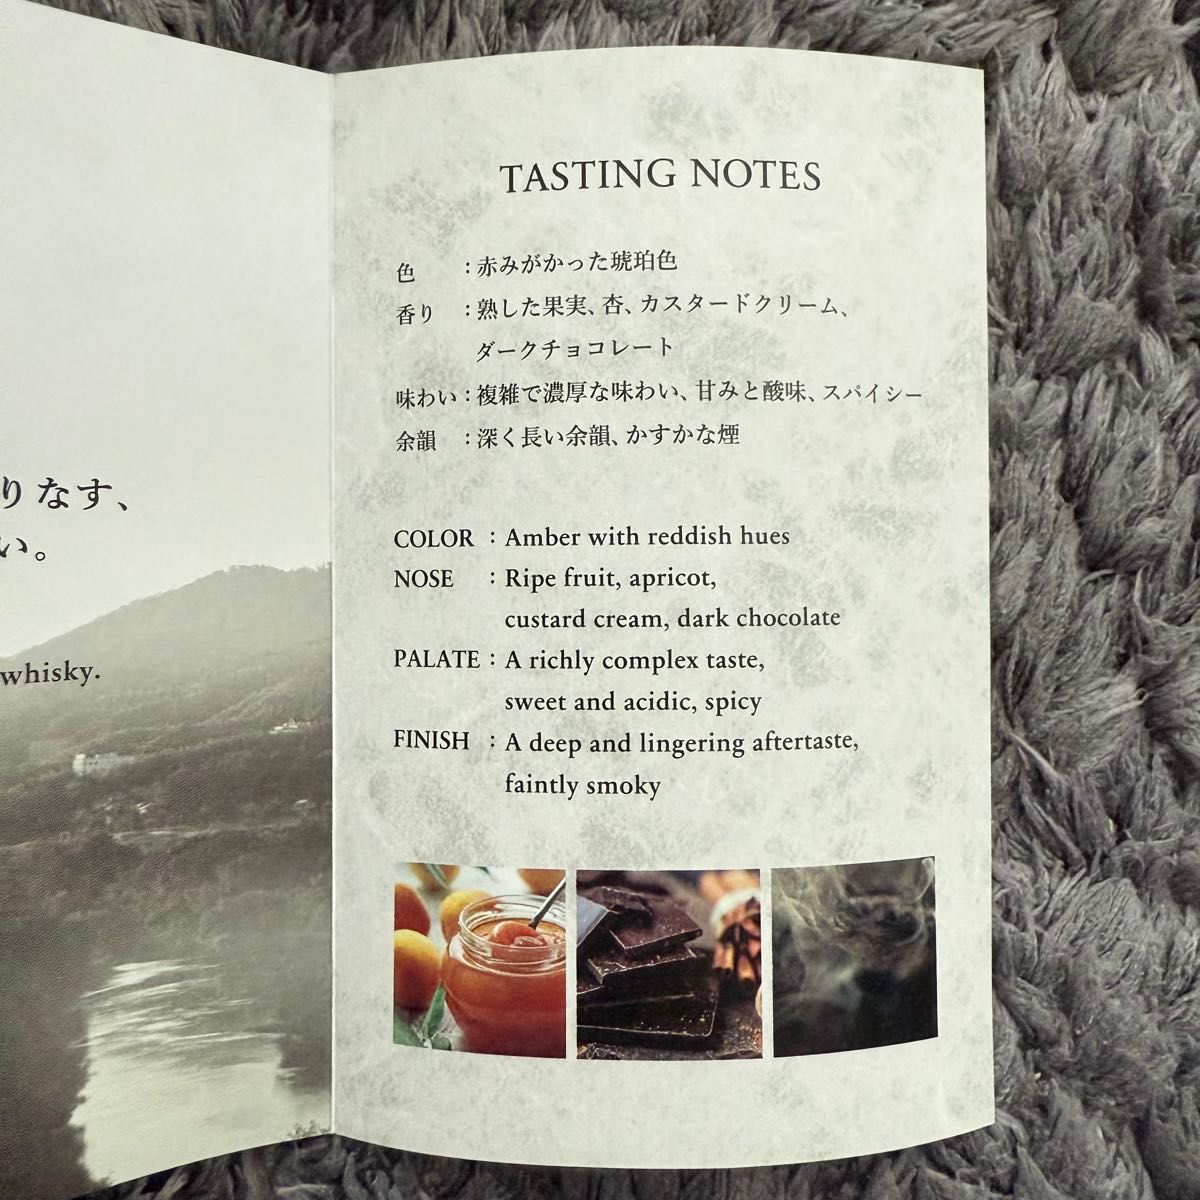 りなす、
い。
whisky.
TASTING NOTES
色 ：赤みがかった琥珀色
香り ：熟した果実、杏、カスタードクリーム、
ダークチョコレート
味わい：複雑で濃厚な味わい、甘みと酸味、スパイシー
余韻 ：深く長い余韻、かすかな煙
COLOR : Amber with reddish hues
NOSE : Ripe fruit, apricot,
custard cream, dark chocolate
PALATE : A richly complex taste,
sweet and acidic, spicy
FINISH : A deep and lingering aftertaste,
faintly smoky